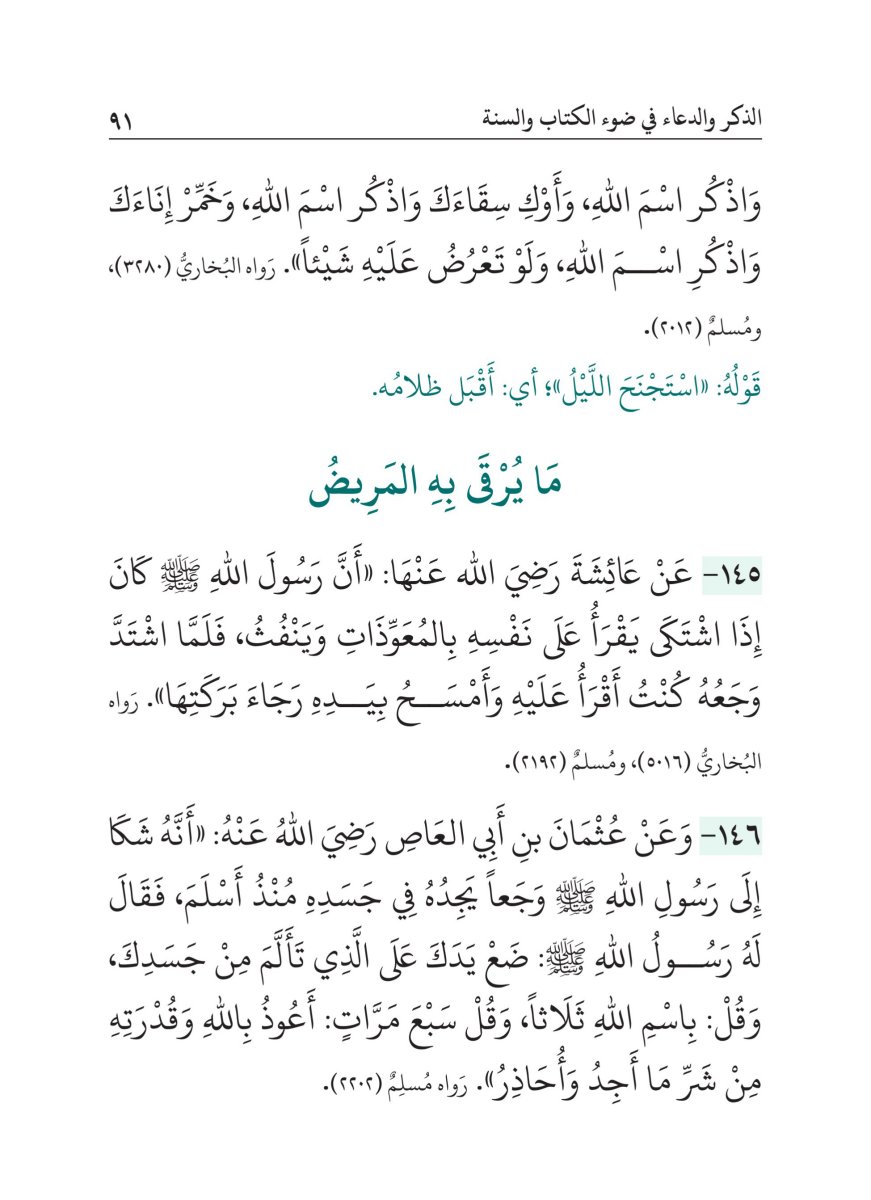 الذكر والدعاء في ضوء الكتاب والسنة ٩١
وَاذْكُر اسْمَ اللهِ، وَأَوْكِ سِقَاءَكَ وَاذْكُر اسْمَ اللهِ، وَخَمِّرْ إِنَاءَكَ
وَاذْكُرِ اسْـــمَ اللهِ، وَلَوْ تَعْرُضُ عَلَيْهِ شَيْئاً». رَواه البُخاريُّ (٣٢٨٠)،
ومُسلمٌ (٢٠١٢).
قَوْلُهُ: «اسْتَجْنَحَ اللَّيْلُ»؛ أي: أَقْبَل ظلامُه.
مَا يُرْقَى بِهِ المَرِيضُ
١٤٥- عَنْ عَائِشَةَ رَضِيَ الله عَنْهَا: «أَنَّ رَسُولَ اللهِ ﷺ كَانَ
إِذَا اشْتَكَى يَقْرَأُ عَلَى نَفْسِهِ بِالمُعَوِّذَاتِ وَيَنْفُثُ، فَلَمَّا اشْتَدَّ
وَجَعُهُ كُنْتُ أَقْرَأُ عَلَيْهِ وَأَمْسَـــحُ بِيَـــدِهِ رَجَاءَ بَرَكَتِهَا». رَواه
البُخاريُّ (٥٠١٦)، ومُسلمٌ (٢١٩٢).
١٤٦- وَعَنْ عُثْمَانَ بنِ أَبِي العَاصِ رَضِيَ اللهُ عَنْهُ: «أَنَّهُ شَكَا
إِلَى رَسُولِ اللهِ ﷺ وَجَعاً يَجِدُهُ فِي جَسَدِهِ مُنْذُ أَسْلَمَ، فَقَالَ
لَهُ رَسُـــولُ اللهِ ﷺ: ضَعْ يَدَكَ عَلَى الَّذِي تَأَلَّمَ مِنْ جَسَدِكَ،
وَقُلْ: بِاسْمِ اللهِ ثَلَاثاً، وَقُلْ سَبْعَ مَرَّاتٍ: أَعُوذُ بِاللهِ وَقُدْرَتِهِ
مِنْ شَرِّ مَا أَجِدُ وَأُحَاذِرُ». رَواه مُسلِمٌ (٢٢٠٢).